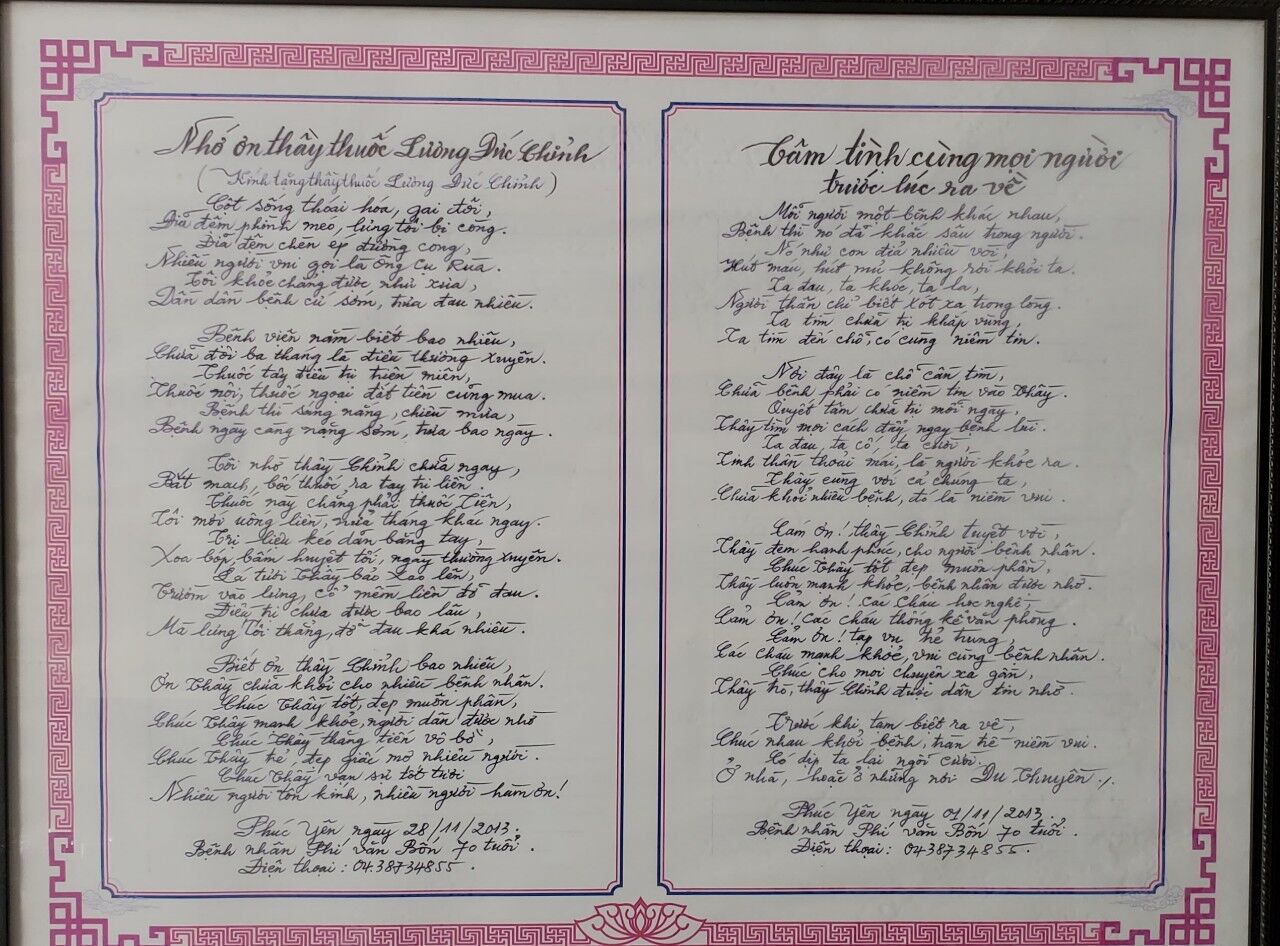 Nhớ ơn thầy thuốc Lương Đức Chỉnh
(Kính tặng thầy thuốc Lương Đức Chỉnh)
Cột sống thoái hóa, gai đôi,
Đĩa đệm phình méo, lưng tôi bị còng.
Đĩa đệm chèn ép đường cong,
Nhiều người vui gọi là Ông Cụ Rùa.
Tôi khỏe chẳng được như xưa,
Dần dần bệnh cứ sớm, trưa đau nhiều.
Bệnh viện nằm biết bao nhiêu,
Chữa đôi ba tháng là điều thường xuyên.
Thuốc tây điều trị triền miên,
Thuốc nội, thuốc ngoại đắt tiền cũng mua.
Bệnh thì sáng nắng, chiều mưa,
Bệnh ngày càng nặng sớm, trưa bao ngày.
Tôi nhờ thầy Chỉnh chữa ngay,
Bắt mạch, bốc thuốc ra tay trị liền.
Thuốc này chẳng phải thuốc Tiên,
Tôi mới uống liền, nửa tháng khác ngay.
Trị liệu kéo dãn bằng tay,
Xoa bóp, bấm huyệt tối, ngày thường xuyên.
Lá tươi Thầy bảo xao lên,
Trườm vào lưng, cổ mềm liền đỡ đau.
Điều trị chưa được bao lâu,
Mà lưng Tôi thẳng, đỡ đau khá nhiều.
Biết ơn thầy Chỉnh bao nhiêu,
Ơn Thầy chữa khỏi cho nhiều bệnh nhân.
Chúc Thầy tốt, đẹp muôn phần,
Chúc Thầy mạnh khỏe, người dân được nhờ
Chúc Thầy thăng tiến vô bờ,
Chúc Thầy trẻ, đẹp giấc mơ nhiều người.
Chúc Thầy vạn sự tốt tươi
Nhiều người tôn kính, nhiều người hàm ơn!
Phúc Yên ngày 28/11/2013.
Bệnh nhân Phí văn Bốn 70 tuổi.
Điện thoại: 04.38734855.
Tâm tình cùng mọi người
trước lúc ra về
Mỗi người một bệnh khác nhau,
Bệnh thì nó đã khắc sâu trong người.
Nó như con đỉa nhiều vòi,
Hút máu, hút mủ không rời khỏi ta.
Ta đau, ta khóc, ta la,
Người thân chỉ biết xót xa trong lòng.
Ta tìm chữa trị khắp vùng,
Ta tìm đến chỗ, có cùng niềm tin.
Nơi đây là chỗ cần tìm,
Chữa bệnh phải có niềm tin vào Thầy.
Quyết tâm chữa trị mỗi ngày,
Thầy tìm mọi cách đẩy ngay bệnh lui.
Ta đau, ta cố, ta cười,
Tinh thần thoải mái, là người khỏe ra.
Thầy cùng với cả chúng ta,
Chữa khỏi nhiều bệnh, đó là niềm vui.
Cảm ơn! thầy Chỉnh tuyệt vời,
Thầy đem hạnh phúc, cho người bệnh nhân.
Chúc Thầy tốt đẹp muôn phần,
Thầy luôn mạnh khỏe, bệnh nhân được nhờ.
Cảm ơn! các cháu học nghề,
Cảm ơn! các cháu thống kê văn phòng.
Cảm ơn! tạp vụ trẻ trung,
Các cháu mạnh khỏe, vui cùng bệnh nhân.
Chúc cho mọi chuyện xa gần,
Thầy trò, thầy Chỉnh được dân tin nhờ.
Trước khi tạm biệt ra về,
Chúc nhau khỏi bệnh, tràn trề niềm vui.
Có dịp ta lại ngồi cười.
Ở nhà, hoặc ở những nơi Du Thuyền ./.
Phúc Yên ngày 01/11/2013
Bệnh nhân Phí văn Bốn 70 tuổi.
Điện thoại: 0438734855.